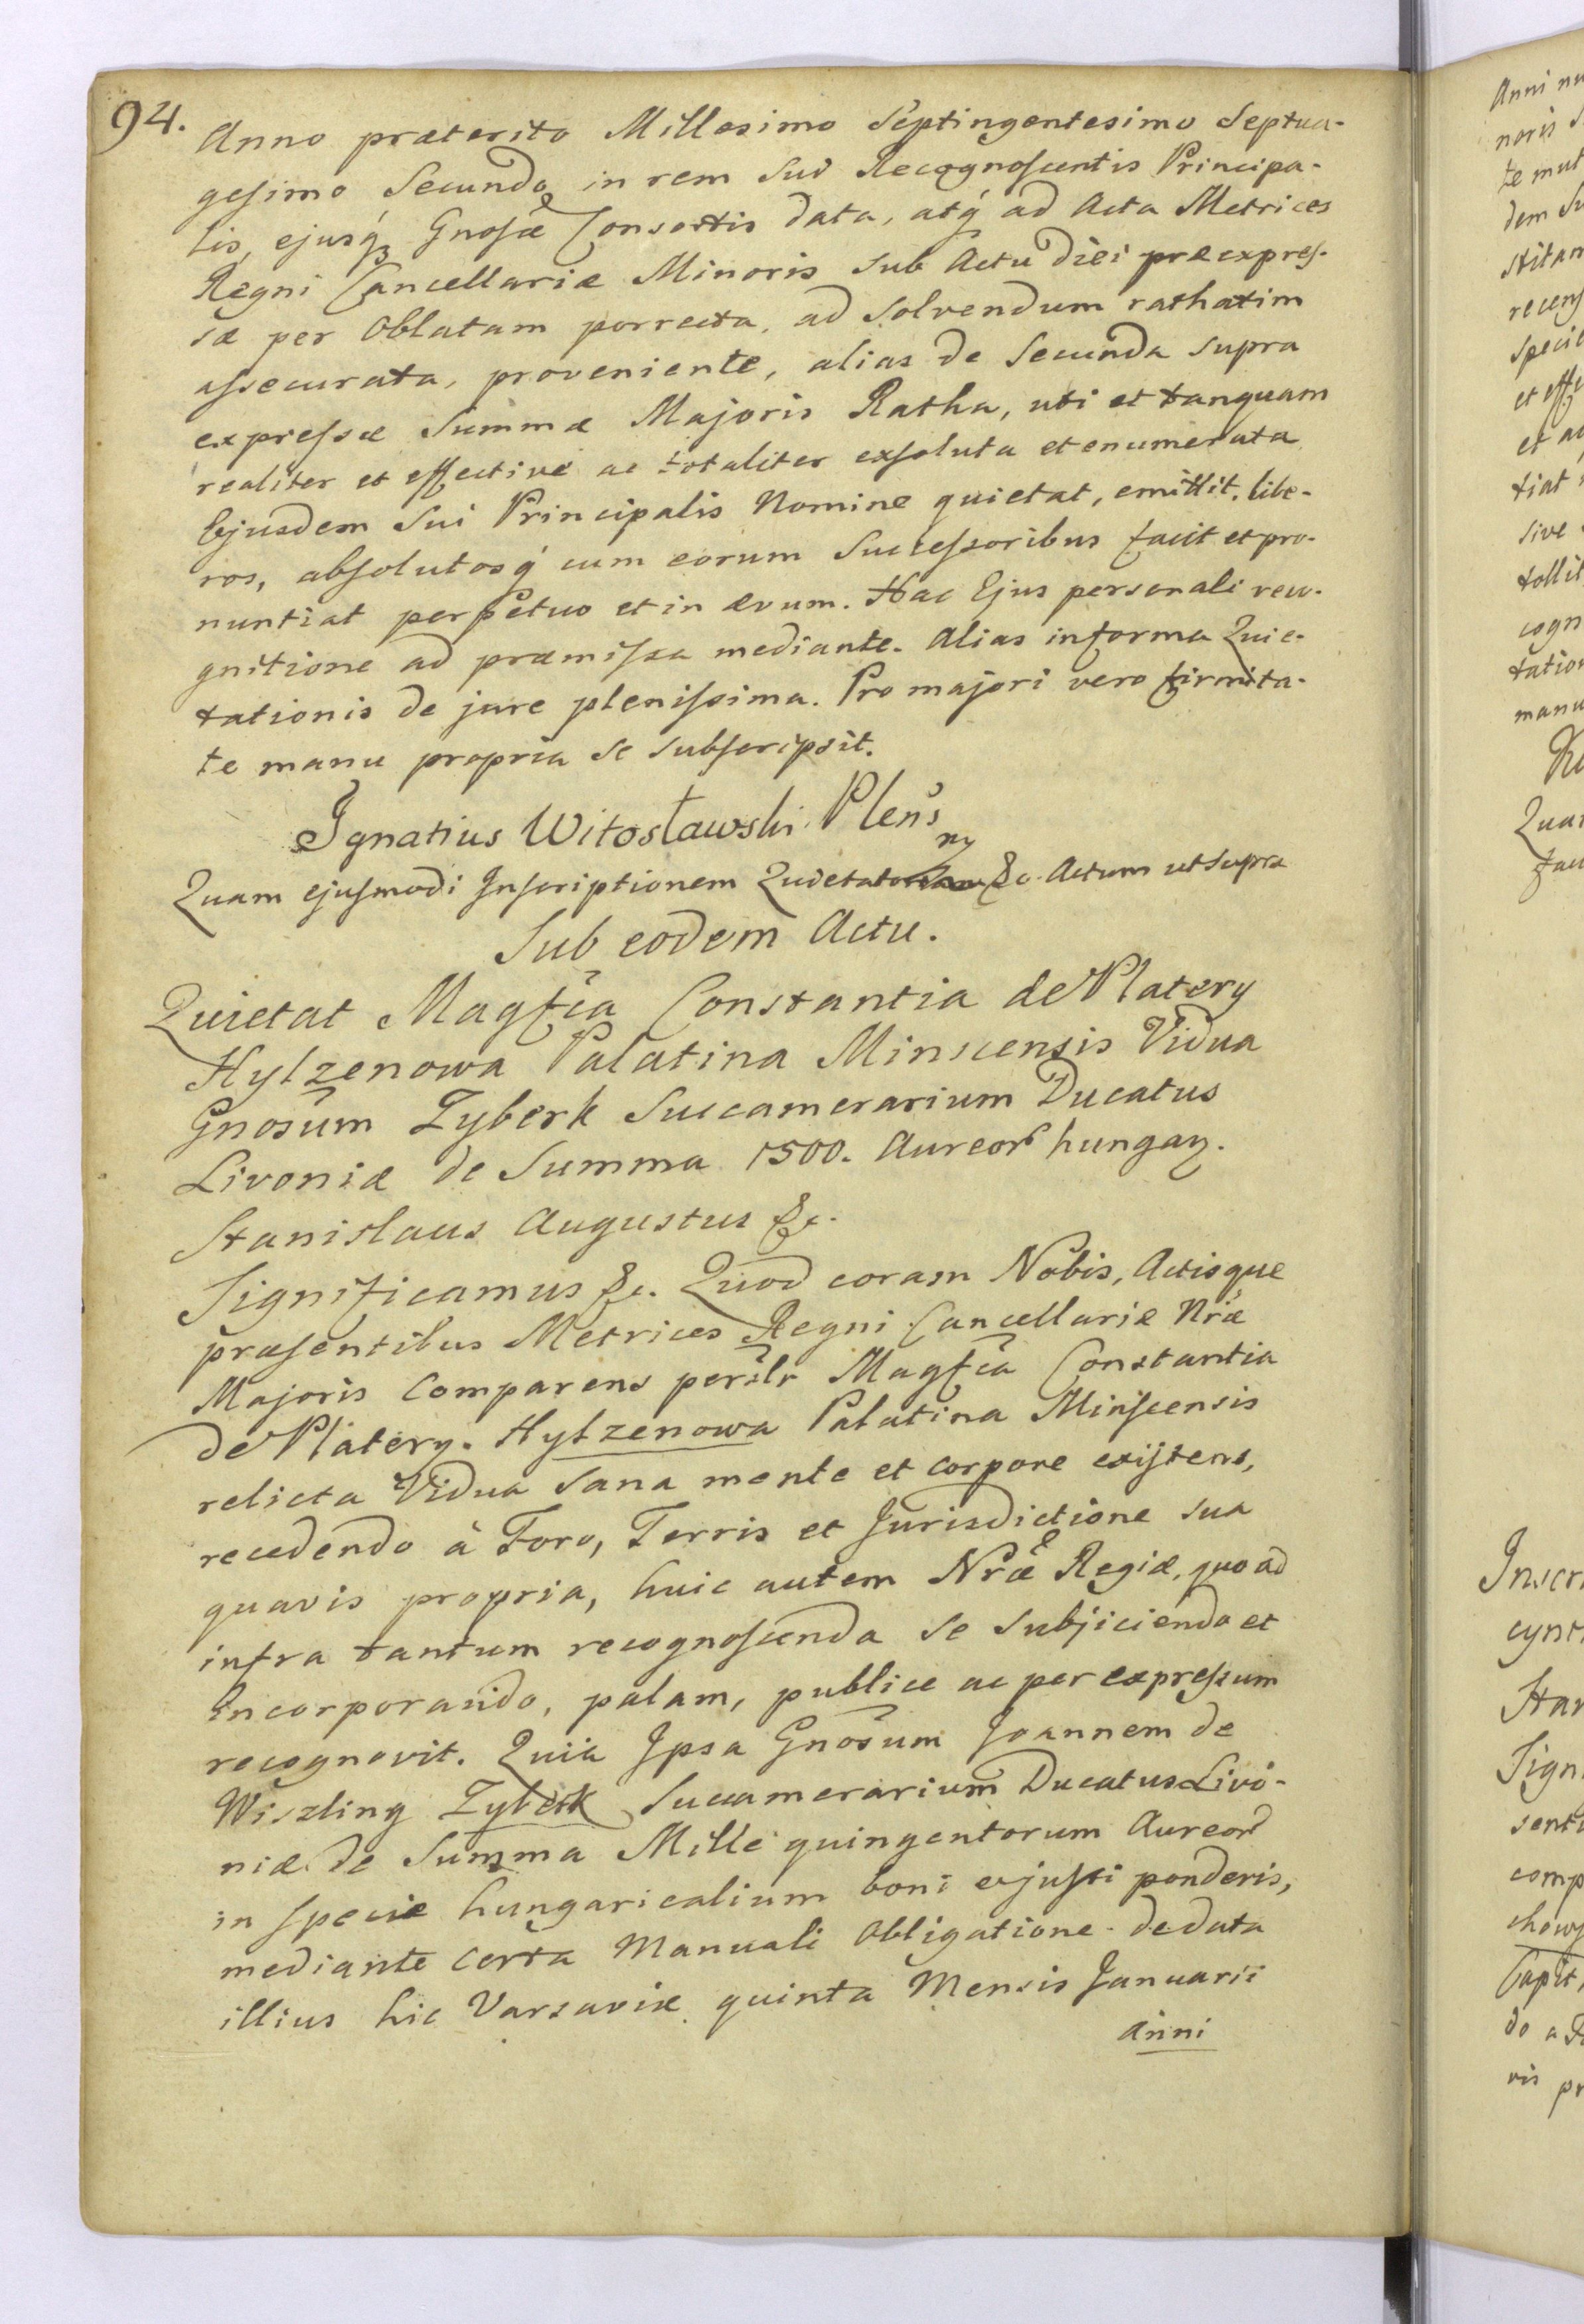 94.
Anno præterito Millesimo Septingentesimo Septua-
gesimo Secundo in rem sui Recognoscentis Principa-
lis, ejusq́ꝫ Gnosæ Consortis data, atq́ ad Acta Metrices
Regni Cancellariæ Minoris sub Actu diei præexpres-
sæ per Oblatam porrecta, ad solvendum rathatim
assecurata, proveniente, alias de Secunda supra
expressæ Summæ Majoris Ratha, uti et tanquam
realiter et effective ac totaliter exsoluta et enumerata
Ejusdem sui Principalis Nomine quietat, emittit, libe-
ros, absolutosq́ cum eorum Successoribus facit et pro-
nuntiat perpetuo et in ævum. Hac Ejus personali reco-
gnitione ad præmissa mediante. Alias in forma Quie-
tationis de jure plenissima. Pro majori vero firmita-
te manu propria se subscripsit.
Ignatius Witosławski Pleñs
Quam ejusmodi Inscriptionem &c. Actum ut supra
Sub eodem Actu.
Quietat Magfĩca Constantia de Platery
Hylzenowa Palatina Minscensis Vidua
Gnosũm Zyberk Succamerarium Ducatus
Livoniæ de Summa 1500. Aureor hungaꝝ.
Stanislaus Augustus &c.
Significamus &c. Quod coram Nobis, Actisque
præsentibus Metrices Regni Cancellariæ Nræ
Majoris Comparens persĩlr Magfĩca Constantia
de Platery. Hylzenowa Palatina Minscensis
relicta Vidua sana mente et corpore existens,
recedendo à Foro, Terris et Jurisdictione sua
quavis propria, huic autem Nræ Regiæ, quo ad
infra tantum recognoscenda se subjiciendo et
incorporando, palam, publice ac per expressum
recognovit. Quia Ipsa Gnosũm Joannem de
Wiszling Zyberk Succamerarium Ducatus Livo-
niæ de Summa Mille quingentorum Aureor
in specie hungaricalium boni ex justi ponderis,
mediante certa Manuali Obligatione de data
illius hic Varsaviæ quinta Mensis Januarii
Anni
Anni nu
noris S
te mut
dem Su
stitan
recens
speci
et effe
et ac
tiat
sive
tollit
cogn
tation
manu
Qua
fac
Inscri
cynt
Stan
Sign
senti
comp
chowj
Capit
do a Fo
vis pr